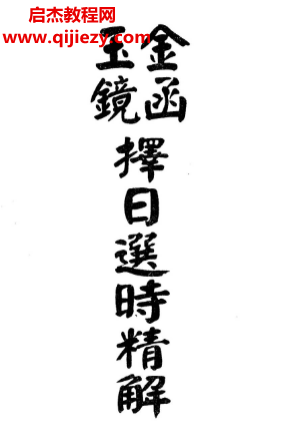 启杰教程网
www.qijiezy.com
金函
玉鏡
擇日選時精解